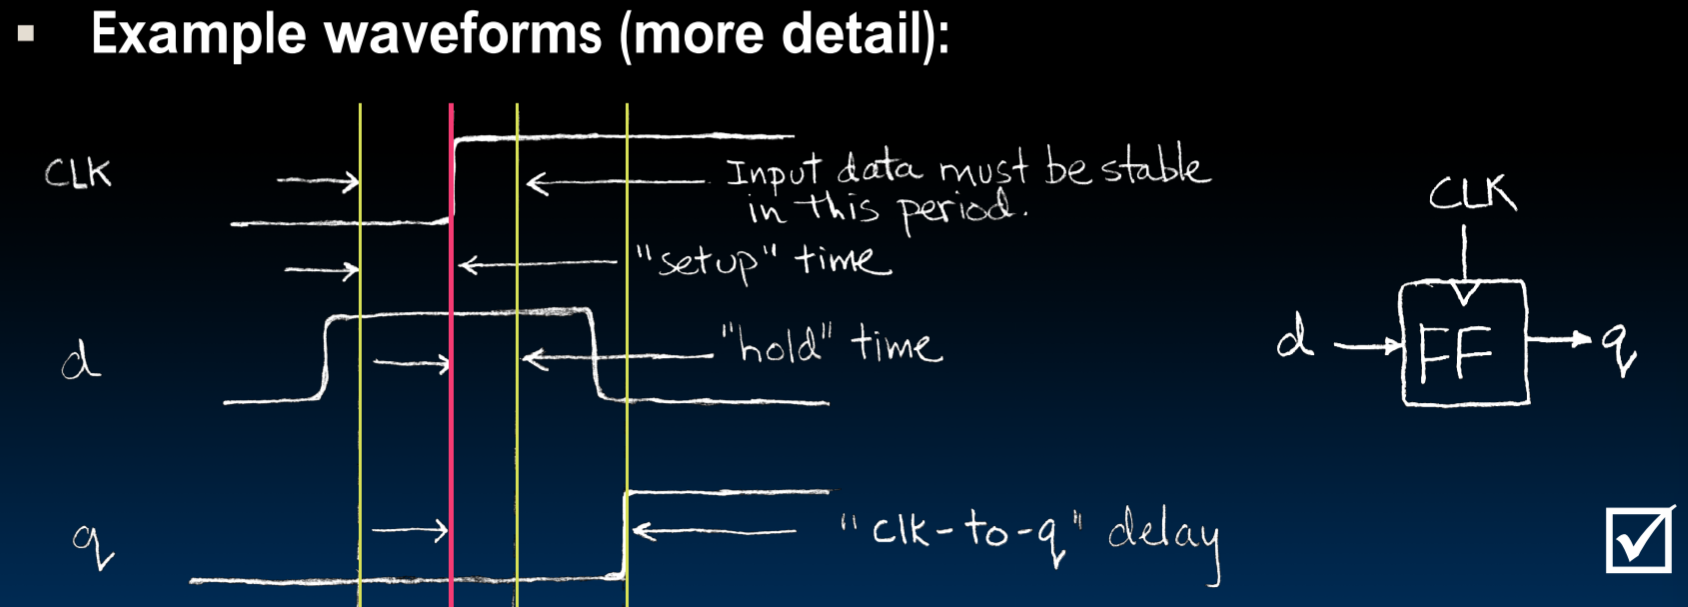 ▪ Example waveforms (more detail):
CLK
Input data must be stable
in this period.
"setup" time
d
"hold" time
q
"clk-to-q" delay
CLK
d
FF
q